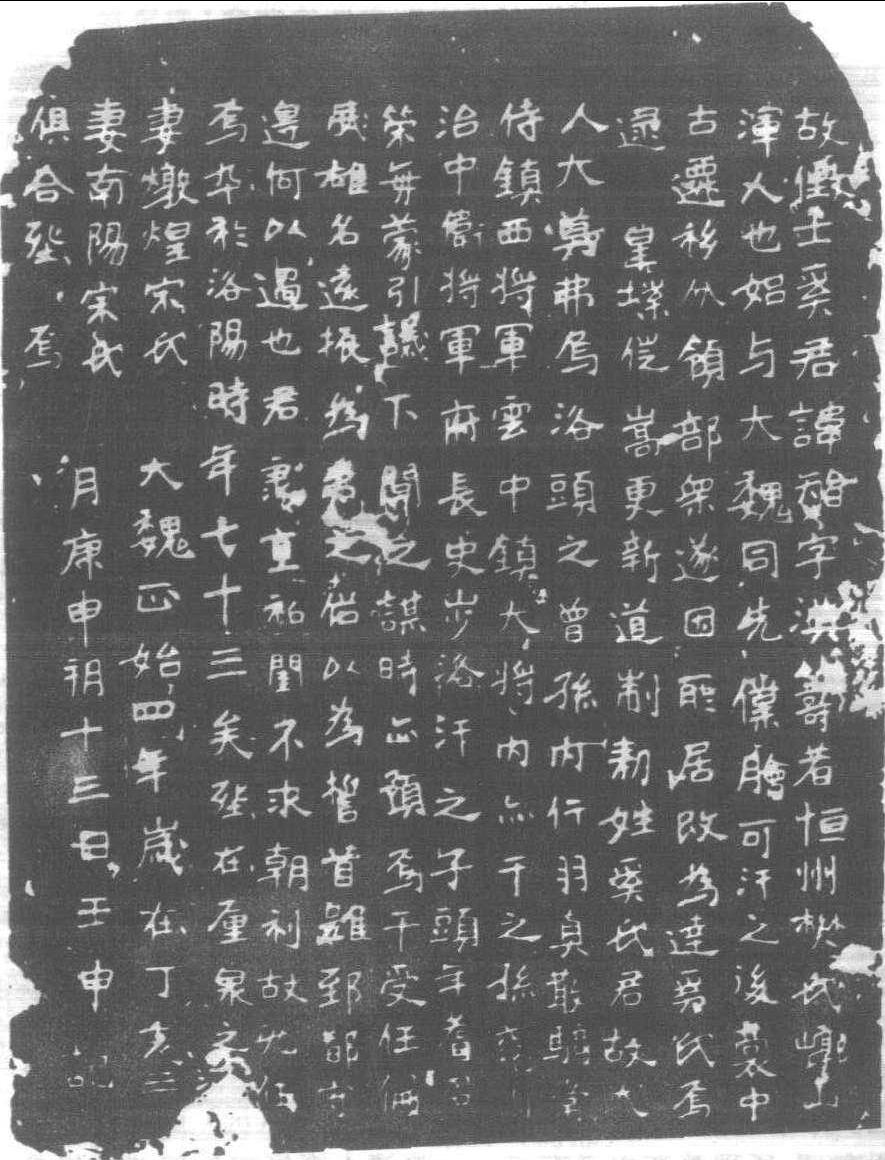 故處士奚君諱智字淟籌者恒州樊氏崞山
渾人也始与大魏同先僕膾可汗之後裔中
古遷移分領部眾遂因所居改為達奚氏焉
逮 皇業徙嵩更新道制勅姓奚氏君故大
人大莫弗烏洛頭之曾孫內行羽真散騎常
侍鎮西將軍雲中鎮大將內亦干之孫
治中衛將軍府長史步洛汗之子頭年耆
策每蒙引議下關之謀時正預焉干受任偏
威雄名遠振為夷之俗以為誓首雖郅都守
邊何以過也君 童秘閨不求朝利故無任
焉卒於洛陽時年七十三矣葬在廛泉之
妻燉煌宋氏 大魏正始四年歲在丁亥三
妻南陽宗氏 月庚申朔十三日壬申記
俱合葬焉